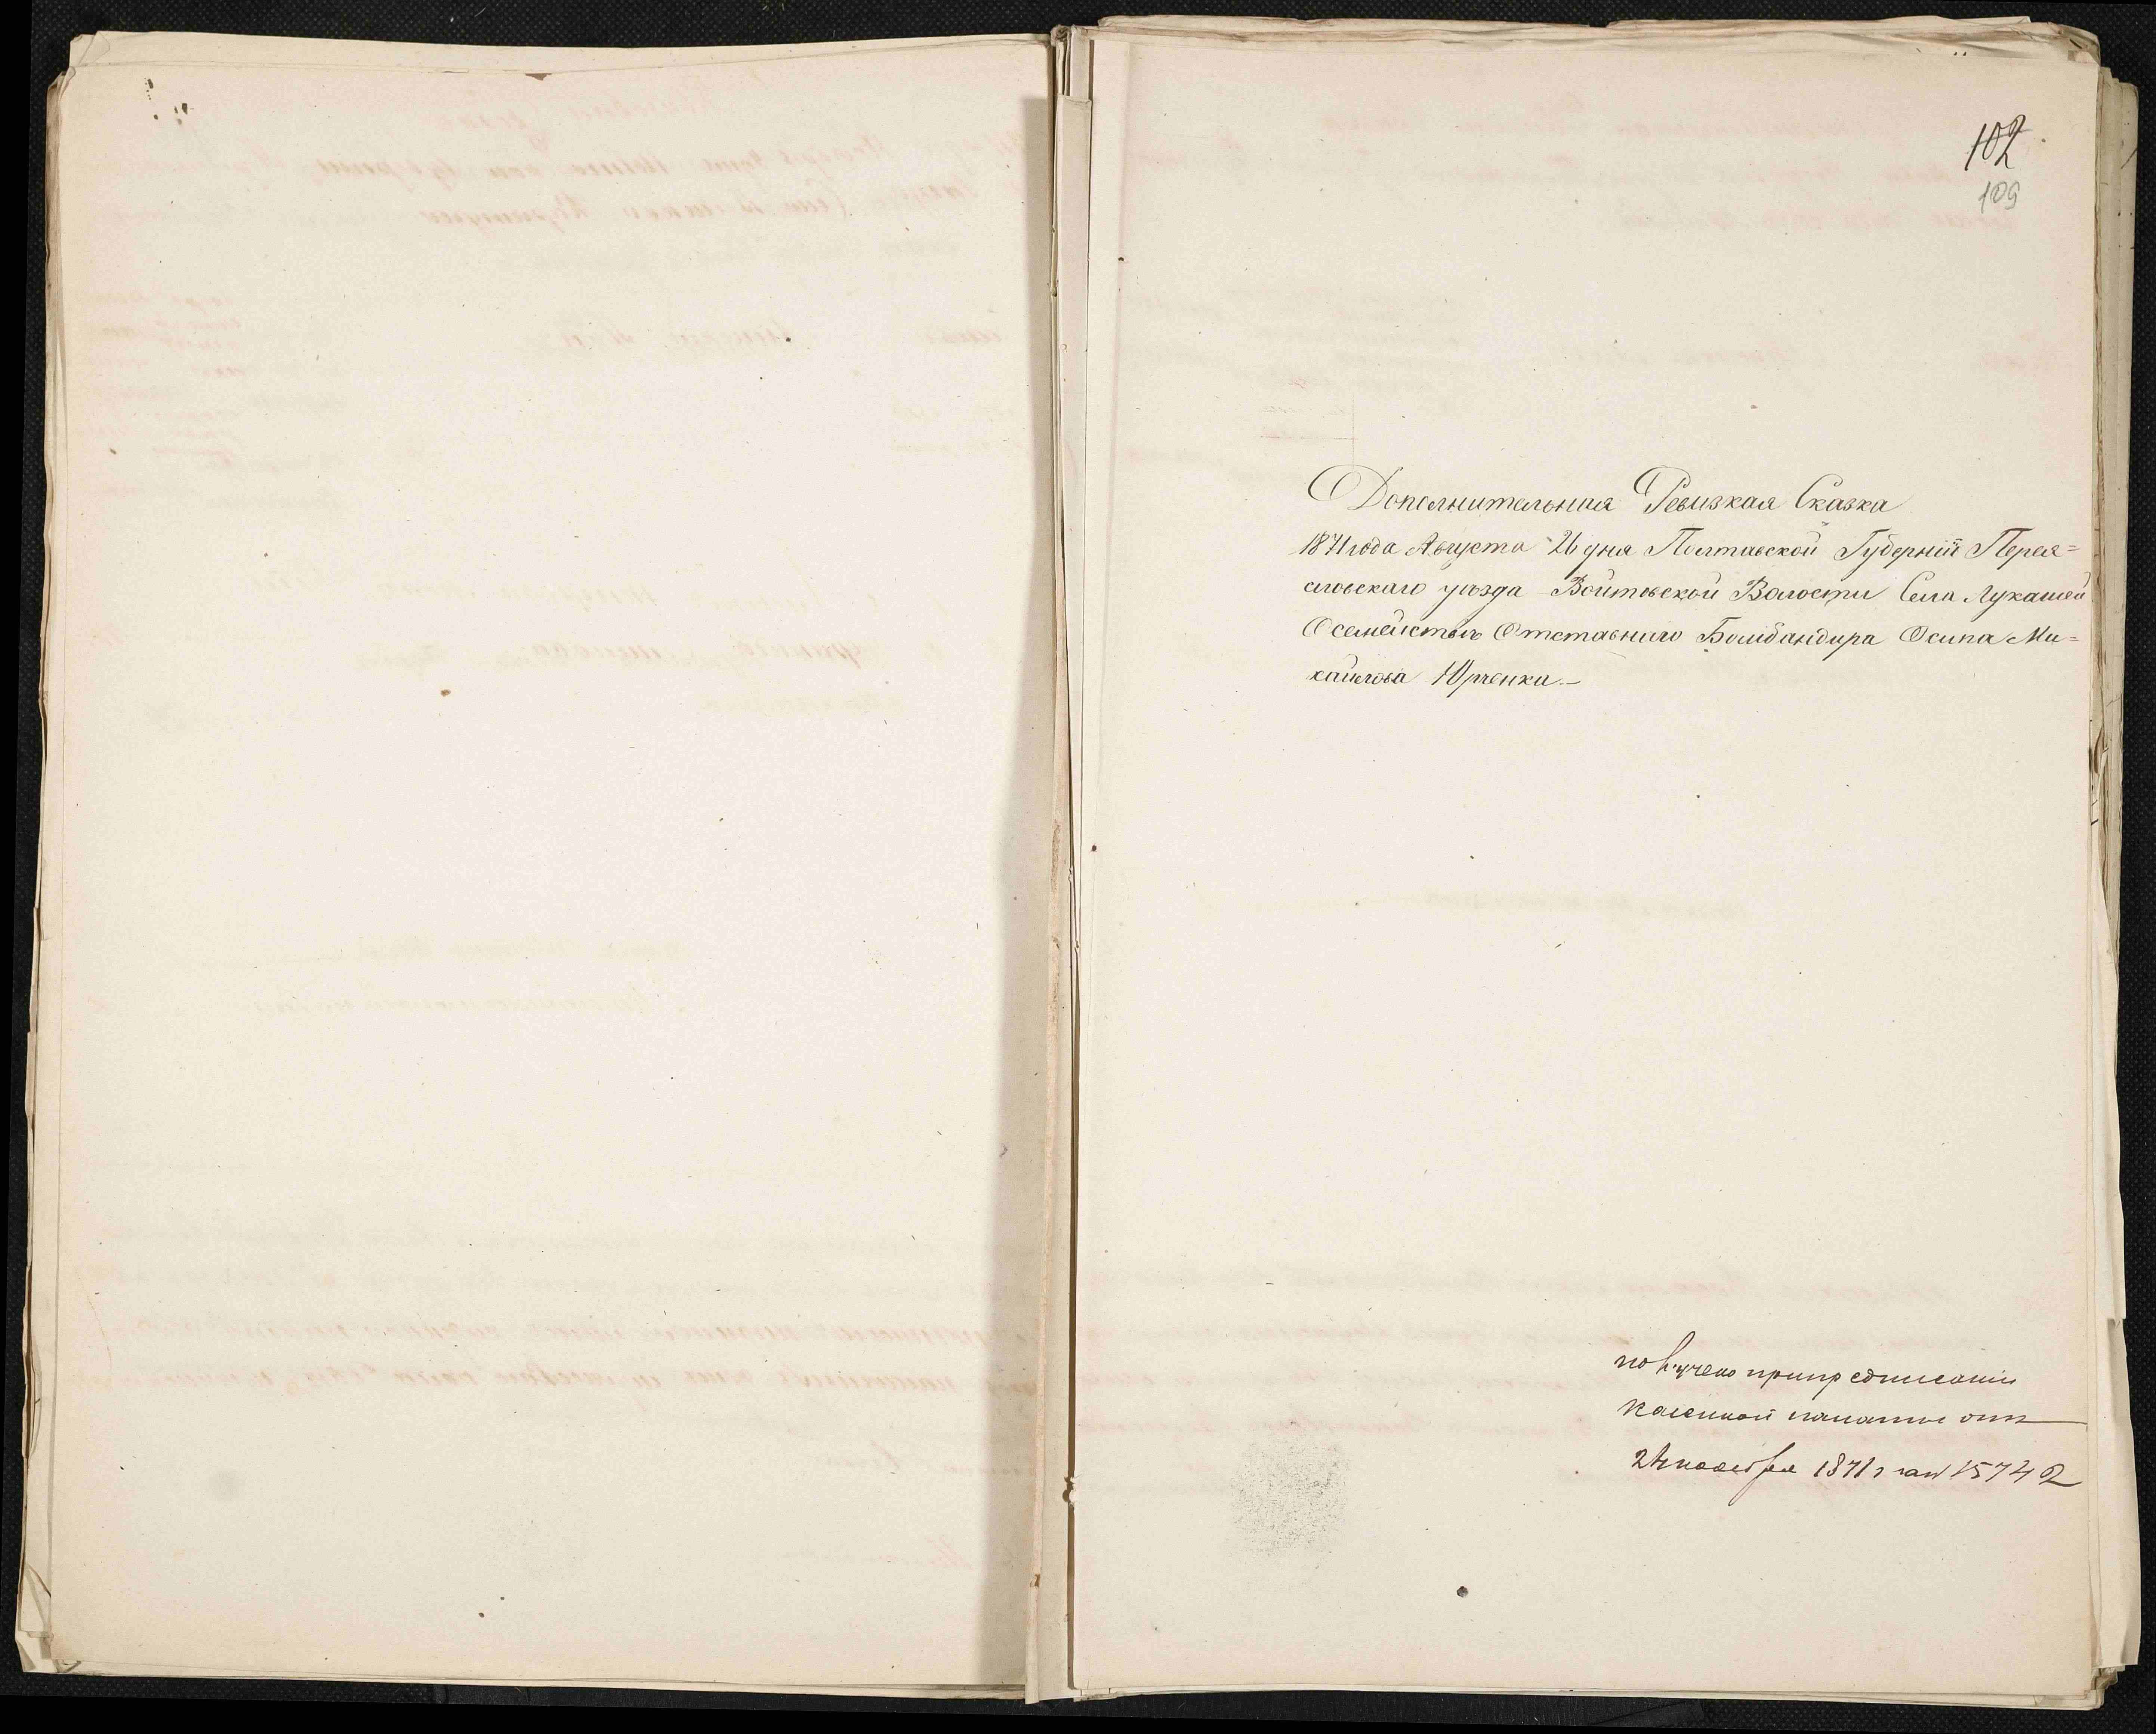 102
109
Дополнительная Ревизкая Сказка
1871 года Августа 26 дня Полтавской Губерніи Перея=
словскаго уѣзда Войтовской Волости Села Лукашей
О семействѣ Отставнаго Бомбандира Осипа Ми=
хайлова Юрченка. —
получено при предписаніи
казенной палаты отъ
24 ноября 1871 г за № 15742